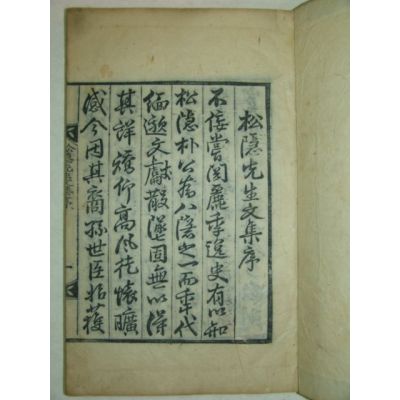 松隱先生文集序
不佞嘗閱麗季逸史有以知
松隱朴公爲八隱之一而年代
緬邈文獻散墜固無以得
其詳矯仰高風秖懷曠
感今因其裔孫世臣始獲